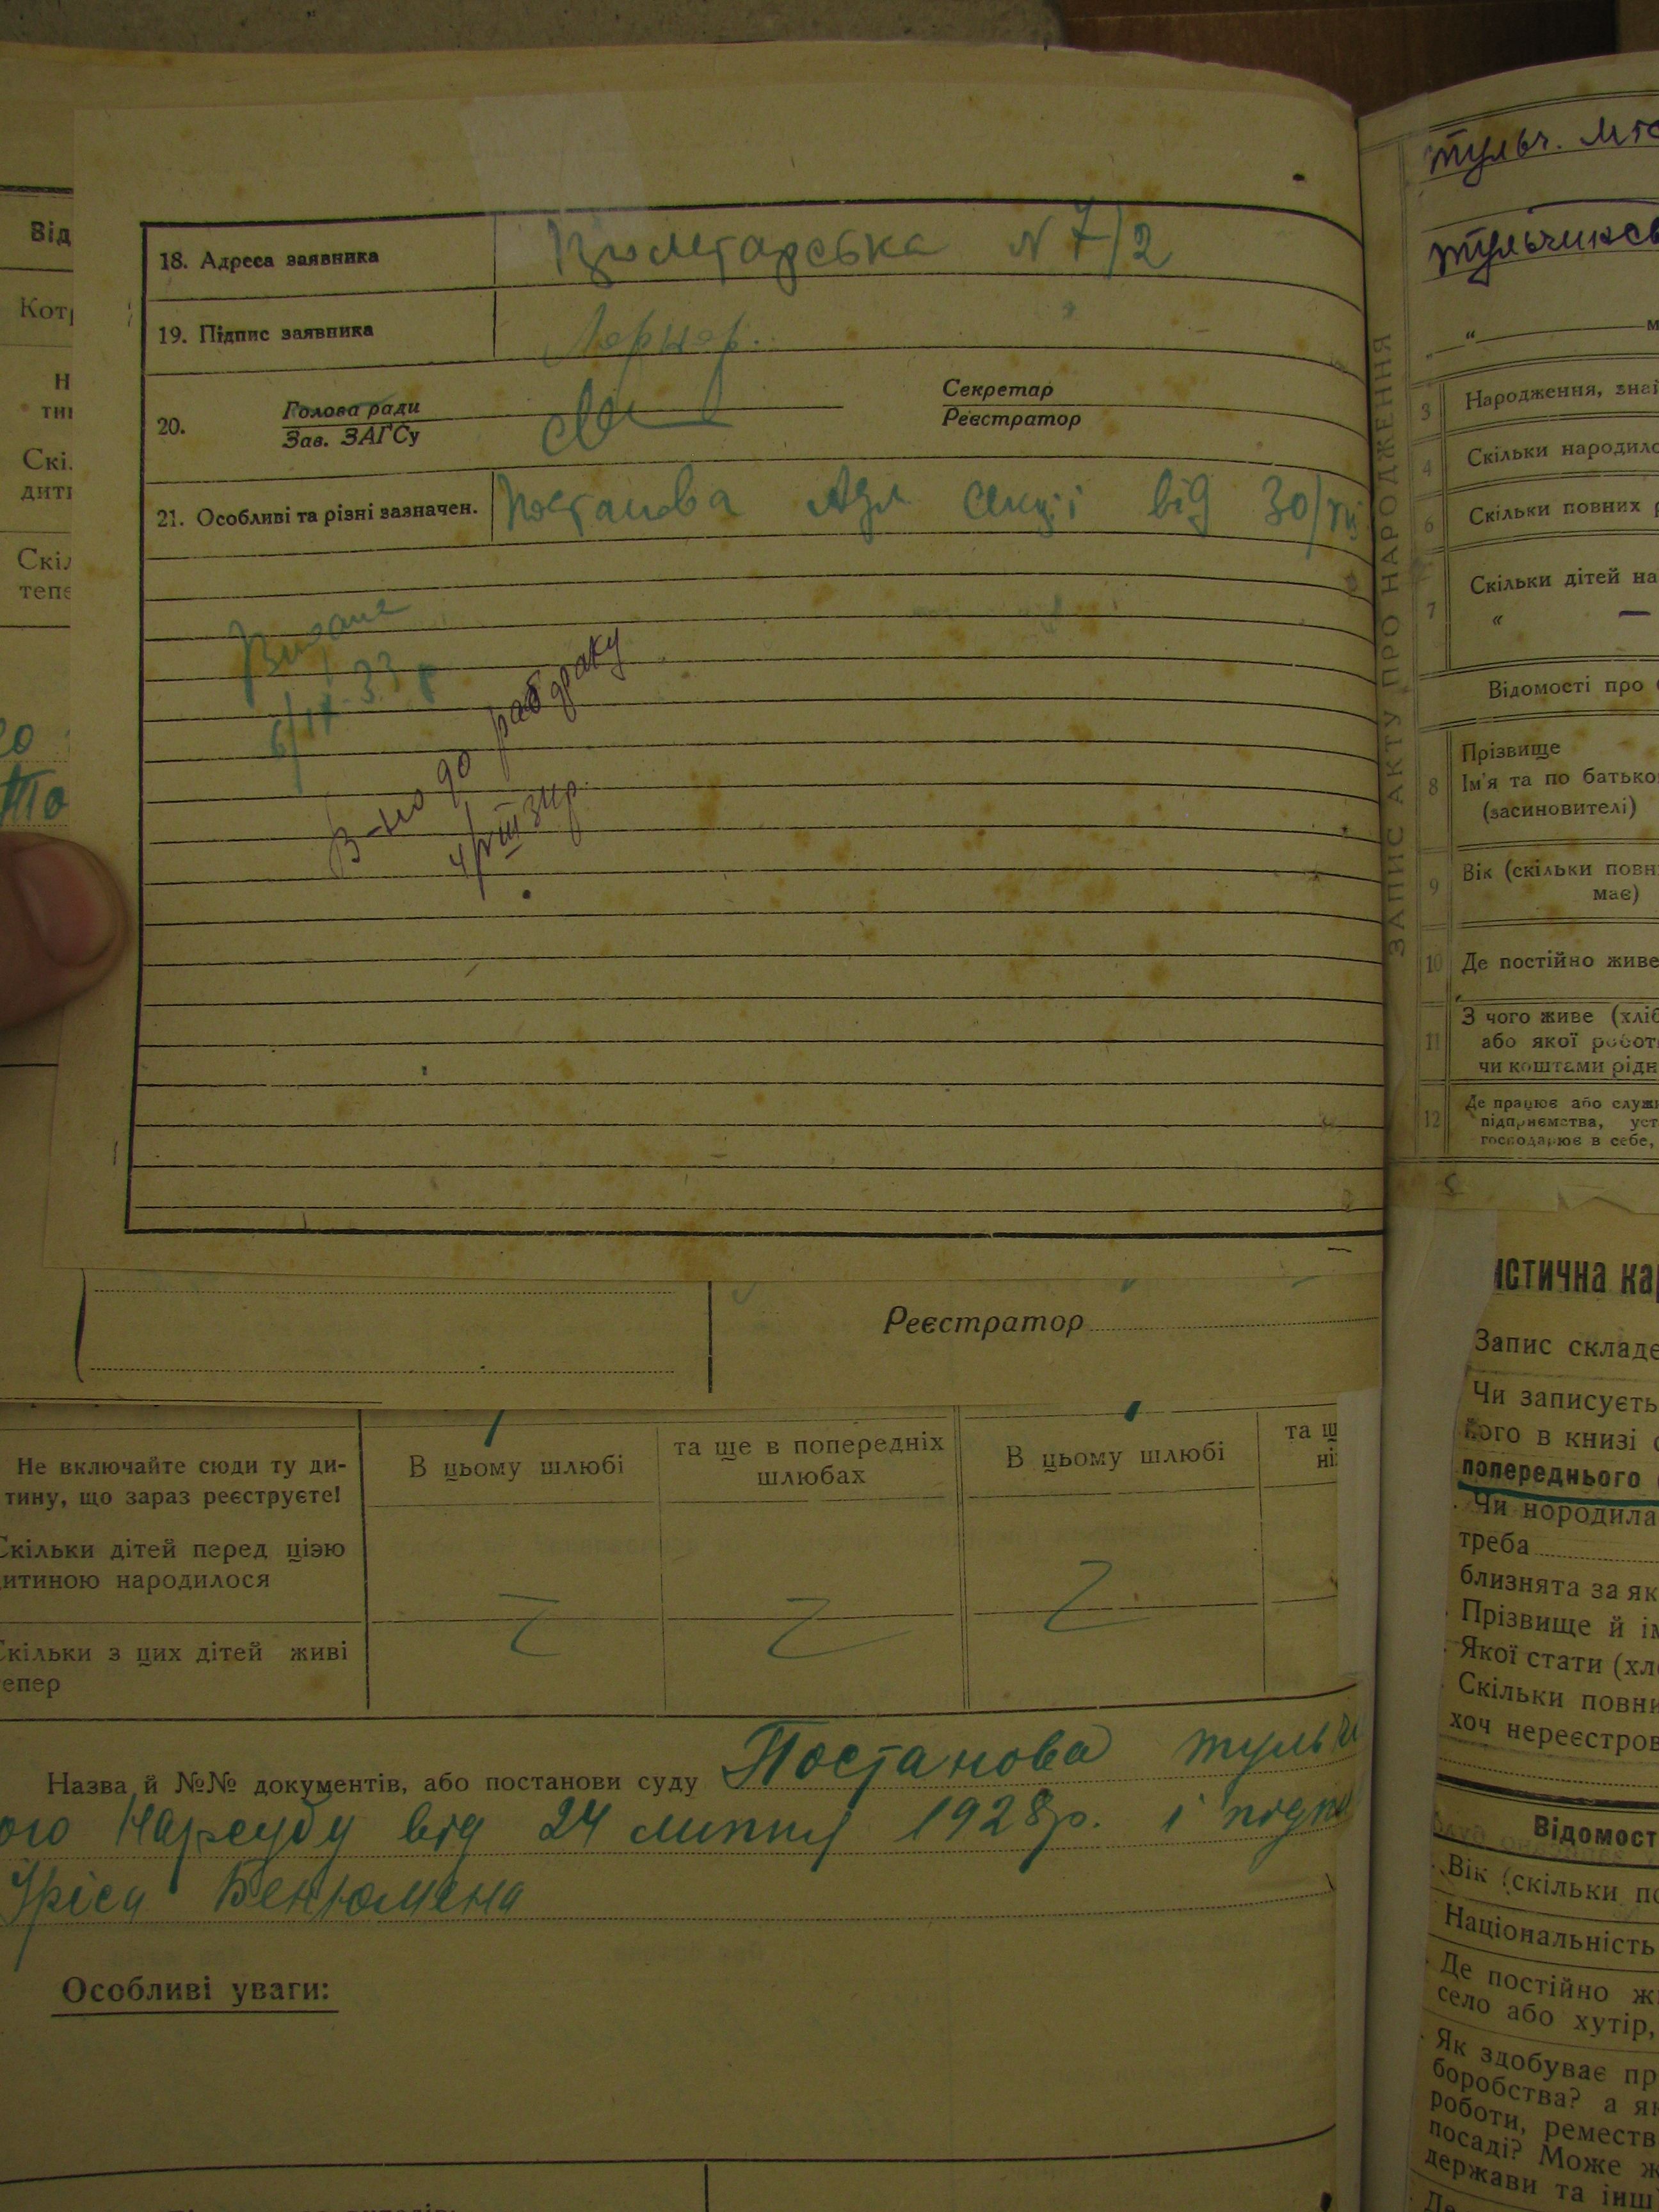 Від
Кот
Н
ти
Скі
дит
Скіл
тепе
18. Адреса заявника
N 7/2
19. Підпис заявника
Лернер.
20.
Голова ради
Зав. ЗАГСу
Секретар
Реєстратор
21. Особливі та різні зазначен.
Постанова Адм секції від 30/
Видане
6/ 33 р
В-но до
Реєстратор
Не включайте сюди ту ди-
тину, що зараз реєструєте!
В цьому шлюбі
та ще в попередніх
шлюбах
В цьому шлюбі
та щ
ні
Скільки дітей перед цією
итиною народилося
Скільки з цих дітей живі
епер
Назва й №№ документів, або постанови суду Постанова тульч
ого Нарсуду від 24 липня 1928р. і підп
Особливі уваги:
ЗАПИС АКТУ ПРО НАРОДЖЕННЯ
тульч. міс
тульчинсь
„ “ м
3 Народження, знай
4 Скільки народило
6 Скільки повних р
7 Скільки дітей на
“ —
Відомості про
8 Прізвище
Ім'я та по батько
(засиновителі)
9 Вік (скільки повн
має)
10 Де постійно живе
11 З чого живе (хліб
або якої робот
чи коштами рідн
12 Де працює або служи
підприємства, уст
господарює в себе,
истична ка
Запис складе
Чи записуєть
кого в книзі
попереднього
Чи нородила
треба
близнята за як
Прізвище й ім
Якої стати (хло
Скільки повни
хоч нереєстров
Відомост
Вік (скільки по
Національність
Де постійно ж
село або хутір,
Як здобуває пр
боробства? а як
роботи, реместв
посаді? Може ж
держави та інш
Де